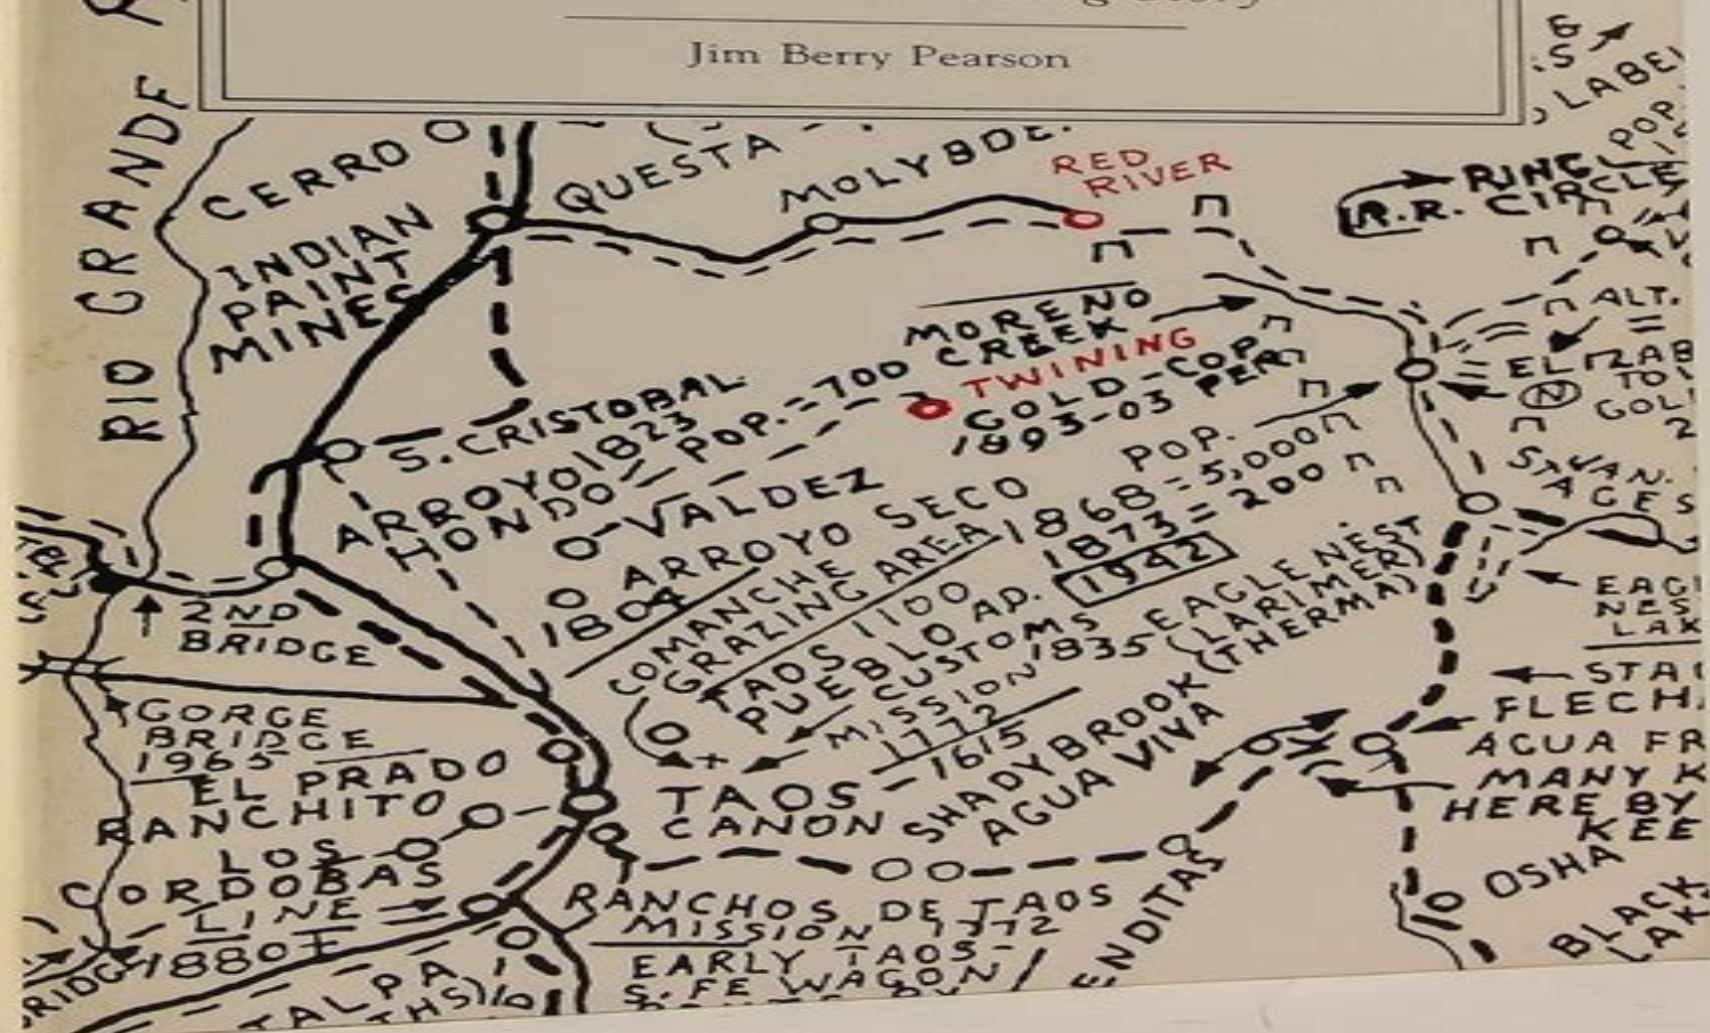 Jim Berry Pearson
RIO GRANDE
CERRO
QUESTA
MOLYBDE.
RED
RIVER
LABE
POP.
R.R. CIRCLE
INDIAN
PAINT
MINES
MORENO
CREEK
TWINING
GOLD-COP.
1893-03 PER.
ALT.
S. CRISTOBAL
ARROYO 1823
HONDO - POP. = 700
VALDEZ
ARROYO SECO
1804
POP.
1868 = 5,000
1873 = 200
1942
STAGES
COMANCHE
GRAZING AREA
TAOS 1100
PUEBLO AD.
CUSTOMS
MISSION
1772
1835 - EAGLE NEST
(LARIMER)
(THERMA)
2ND
BRIDGE
GORGE
BRIDGE
1965
EL PRADO
RANCHITO
LOS
CORDOBAS
LINE
1880
TAOS - 1615
CANON
SHADYBROOK
AGUA VIVA
FLECH
AGUA FR
MANY K
HERE BY
KEE
OSHA
BLACK
LAK
RANCHOS DE TAOS
MISSION 1772
EARLY TAOS-
S. FE WAGON
ENDITAS
TALPA